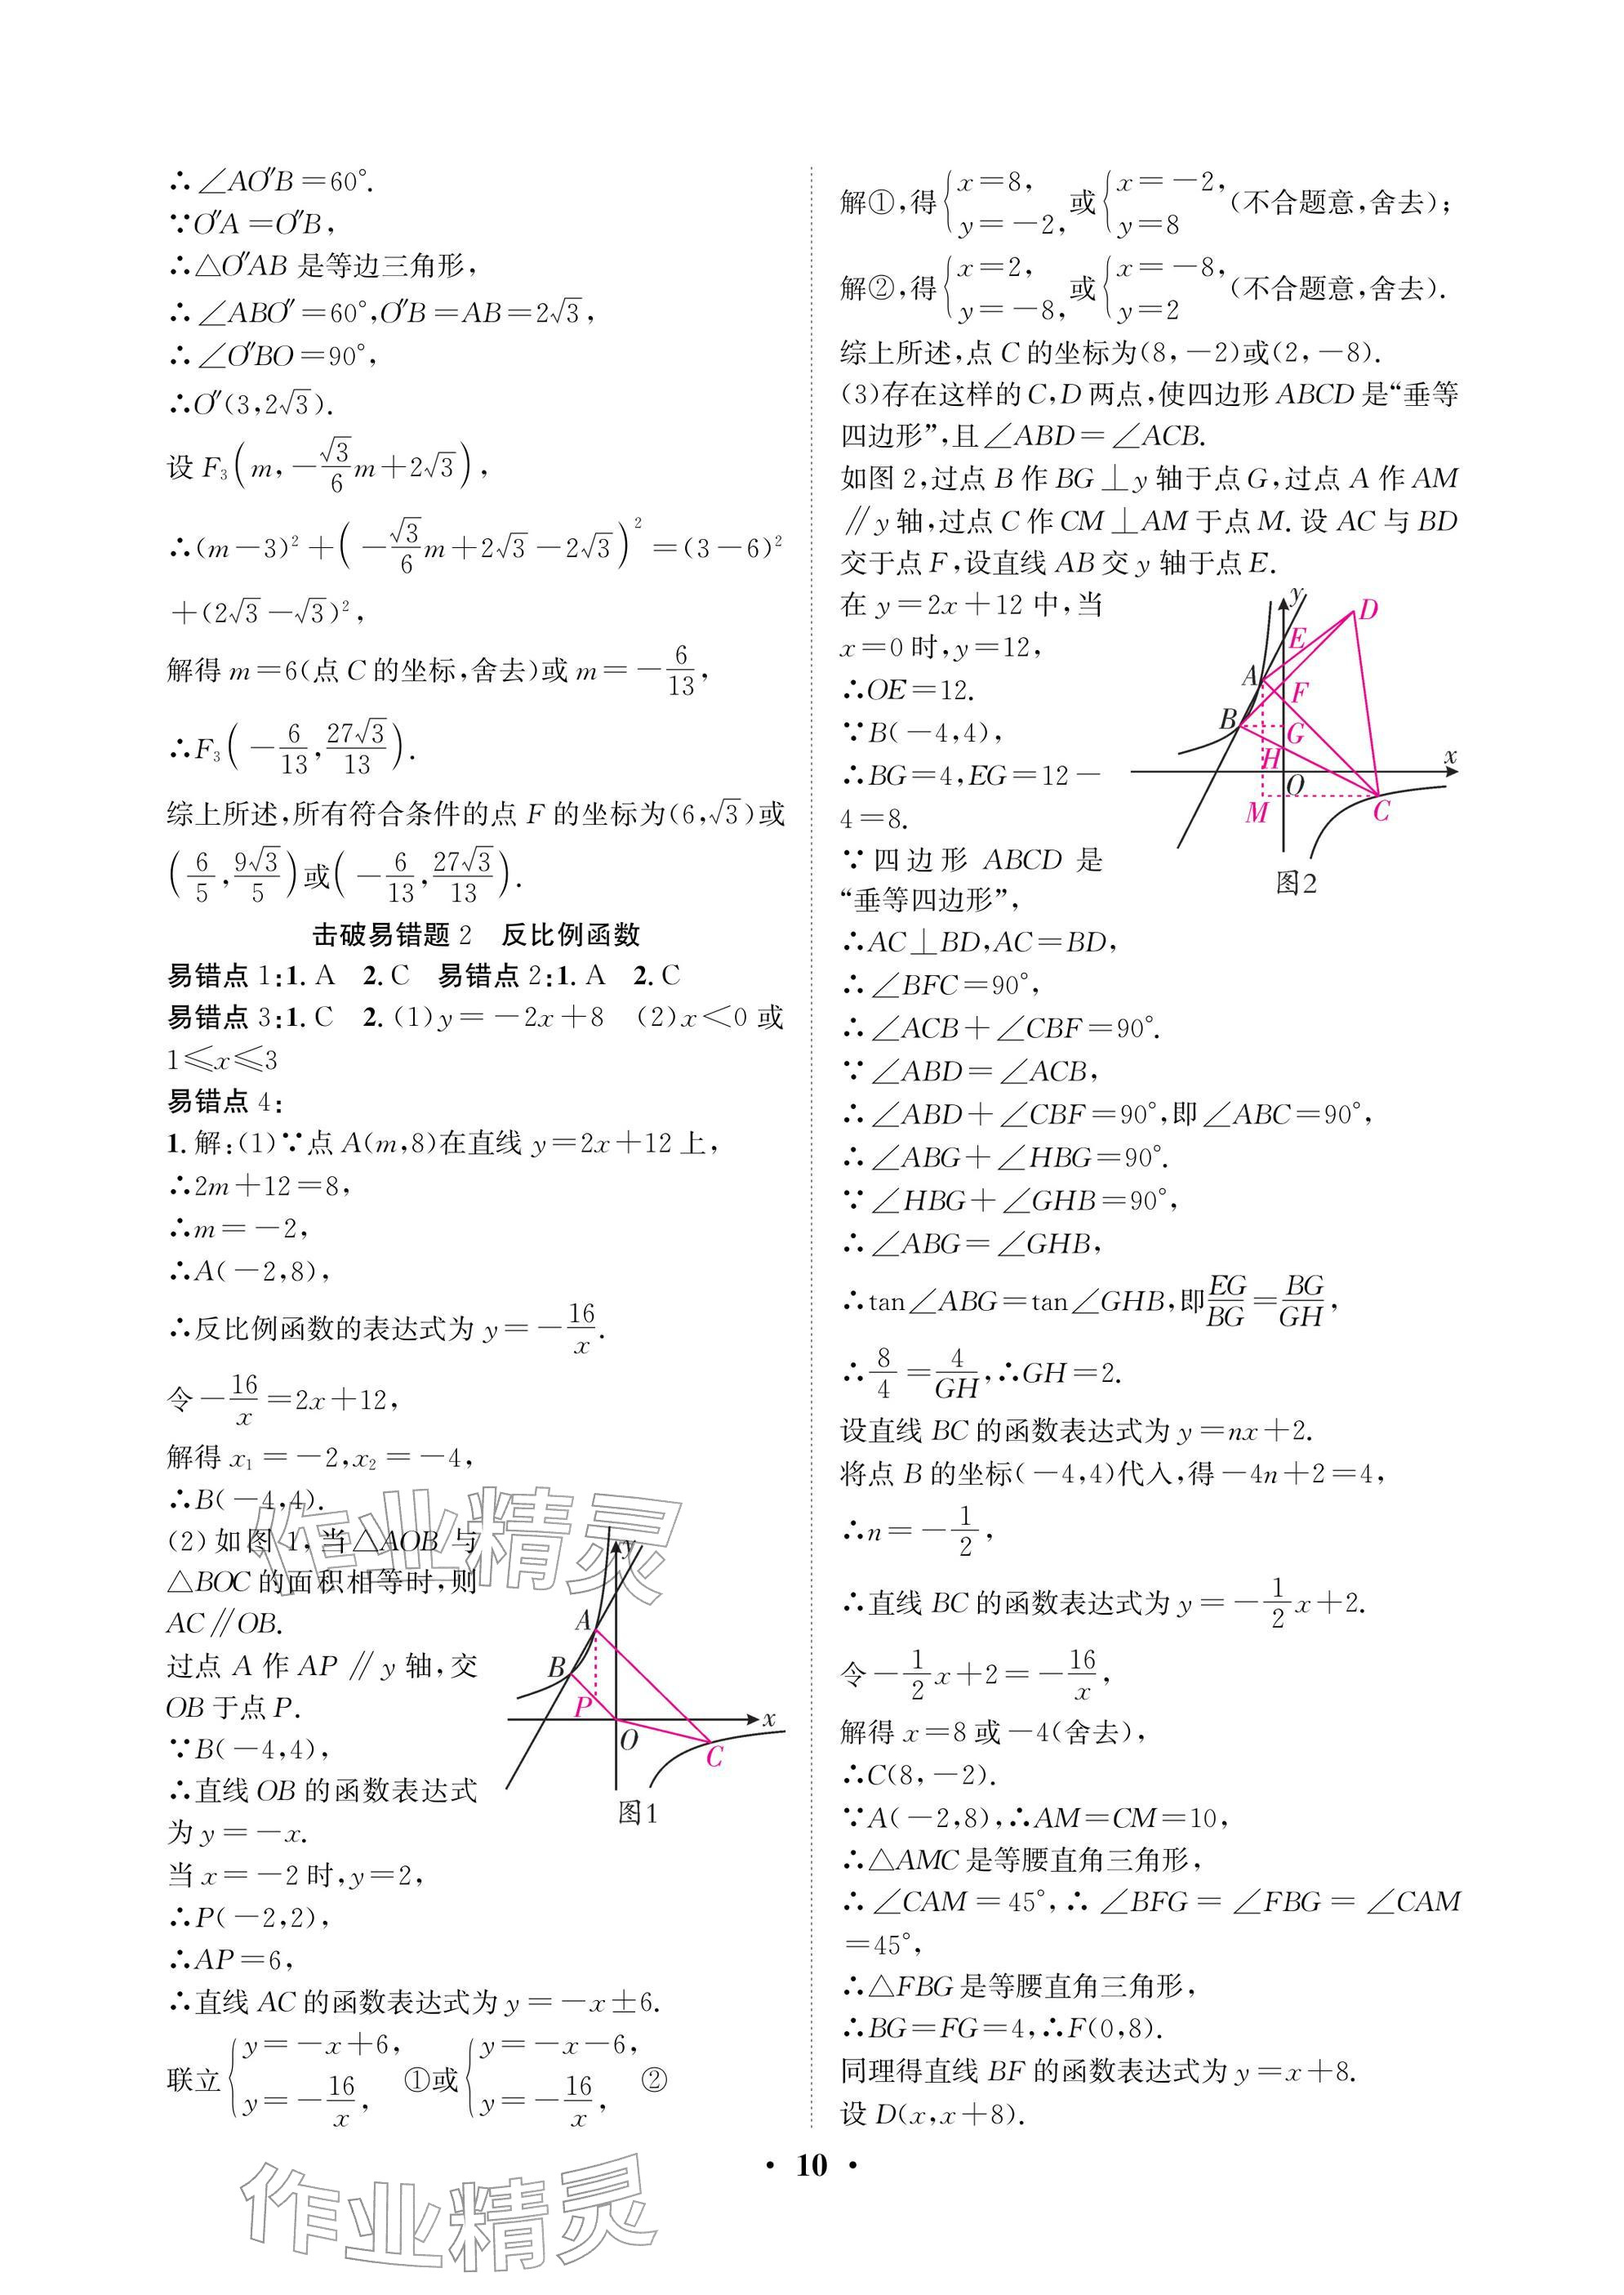 ∴∠AO″B=60°.
∵O″A=O″B,
∴△O″AB 是等边三角形,
∴∠ABO″=60°,O″B=AB=2√3,
∴∠O″BO=90°,
∴O″(3,2√3).
设 F₃(m,-√3/6m+2√3),
∴(m-3)²+(-√3/6m+2√3-2√3)²=(3-6)²
+(2√3-√3)²,
解得 m=6(点 C 的坐标,舍去)或 m=-6/13,
∴F₃(-6/13,27√3/13).
综上所述,所有符合条件的点 F 的坐标为(6,√3)或
(6/5,9√3/5)或(-6/13,27√3/13).
击破易错题 2 反比例函数
易错点 1:1. A 2. C 易错点 2:1. A 2. C
易错点 3:1. C 2. (1)y=-2x+8 (2)x<0 或
1≤x≤3
易错点 4:
1. 解:(1)∵点 A(m,8)在直线 y=2x+12 上,
∴2m+12=8,
∴m=-2,
∴A(-2,8),
∴反比例函数的表达式为 y=-16/x.
令-16/x=2x+12,
解得 x₁=-2,x₂=-4,
∴B(-4,4).
(2) 如图 1, 当△AOB 与
△BOC 的面积相等时,则
AC∥OB.
过点 A 作 AP∥y 轴,交
OB 于点 P.
∵B(-4,4),
∴直线 OB 的函数表达式
为 y=-x.
当 x=-2 时,y=2,
∴P(-2,2),
∴AP=6,
y
A
B
P
x
O
C
图1
∴直线 AC 的函数表达式为 y=-x±6.
联立{y=-x+6, y=-16/x, ①或{y=-x-6, y=-16/x, ②
解①,得{x=8, y=-2, 或{x=-2, y=8 (不合题意,舍去);
解②,得{x=2, y=-8, 或{x=-8, y=2 (不合题意,舍去).
综上所述,点 C 的坐标为(8,-2)或(2,-8).
(3)存在这样的 C,D 两点,使四边形 ABCD 是“垂等
四边形”,且∠ABD=∠ACB.
如图 2,过点 B 作 BG⊥y 轴于点 G,过点 A 作 AM
∥y 轴,过点 C 作 CM⊥AM 于点 M. 设 AC 与 BD
交于点 F,设直线 AB 交 y 轴于点 E.
在 y=2x+12 中,当
x=0 时,y=12,
∴OE=12.
∵B(-4,4),
∴BG=4,EG=12-
4=8.
∵四边形 ABCD 是
“垂等四边形”,
y
D
E
A
F
B
G
H
x
O
M
C
图2
∴AC⊥BD,AC=BD,
∴∠BFC=90°,
∴∠ACB+∠CBF=90°.
∵∠ABD=∠ACB,
∴∠ABD+∠CBF=90°,即∠ABC=90°,
∴∠ABG+∠HBG=90°.
∵∠HBG+∠GHB=90°,
∴∠ABG=∠GHB,
∴tan∠ABG=tan∠GHB,即EG/BG=BG/GH,
∴8/4=4/GH,∴GH=2.
设直线 BC 的函数表达式为 y=nx+2.
将点 B 的坐标(-4,4)代入,得-4n+2=4,
∴n=-1/2,
∴直线 BC 的函数表达式为 y=-1/2x+2.
令-1/2x+2=-16/x,
解得 x=8 或-4(舍去),
∴C(8,-2).
∵A(-2,8),∴AM=CM=10,
∴△AMC 是等腰直角三角形,
∴∠CAM=45°,∴∠BFG=∠FBG=∠CAM
=45°,
∴△FBG 是等腰直角三角形,
∴BG=FG=4,∴F(0,8).
同理得直线 BF 的函数表达式为 y=x+8.
设 D(x,x+8).
作业精灵
作业精灵
· 10 ·